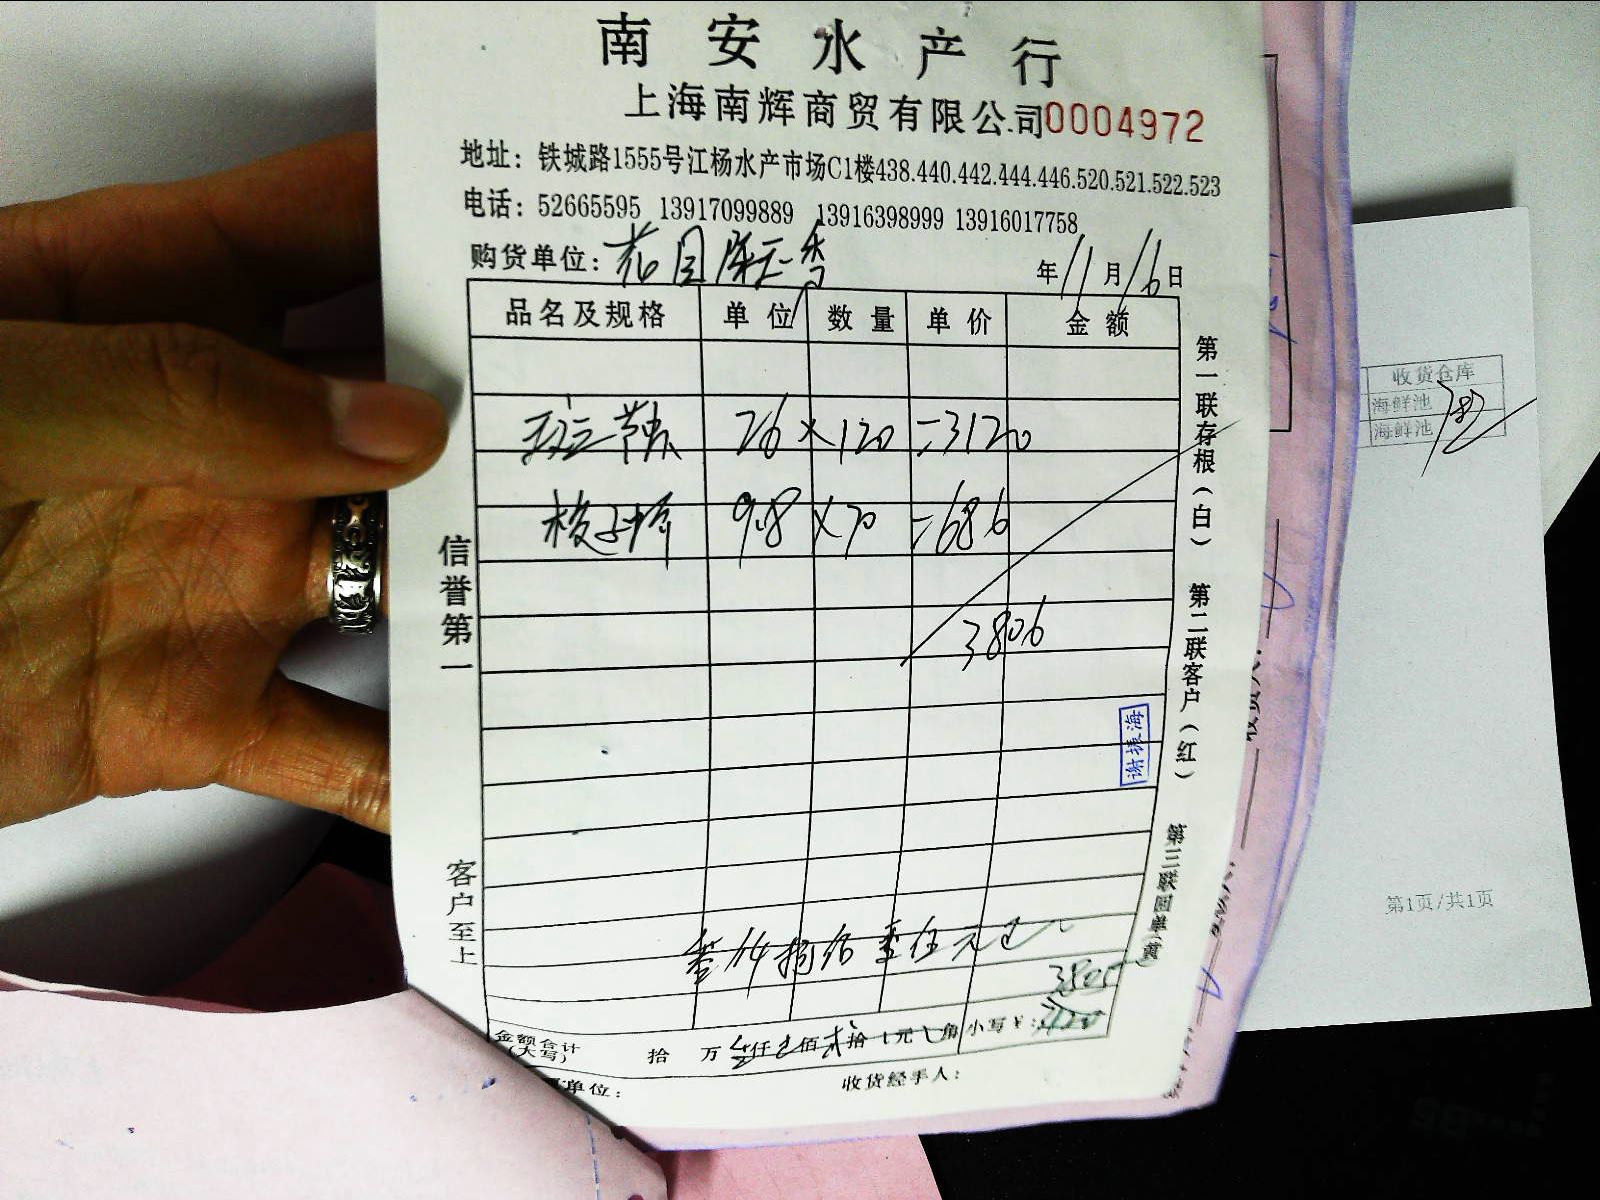 南安水产行
上海南辉商贸有限公司0004972
地址：铁城路1555号江杨水产市场C1楼438.440.442.444.446.520.521.522.523
电话：52665595 13917099889 13916398999 13916017758
购货单位：花园
年11月16日
品名及规格 单位 数量 单价 金额
26×120=3120
梭子 9.8×70=686
3806
谢振海
叁仟捌佰零伍元
3805
金额合计(大写) 拾 万 叁仟 佰贰拾 元 角 小写￥: 3120
单位： 收货经手人：
信誉第一
客户至上
第一联存根（白） 第二联客户（红） 第三联回单（黄）
收货仓库
海鲜池
海鲜池
第1页/共1页